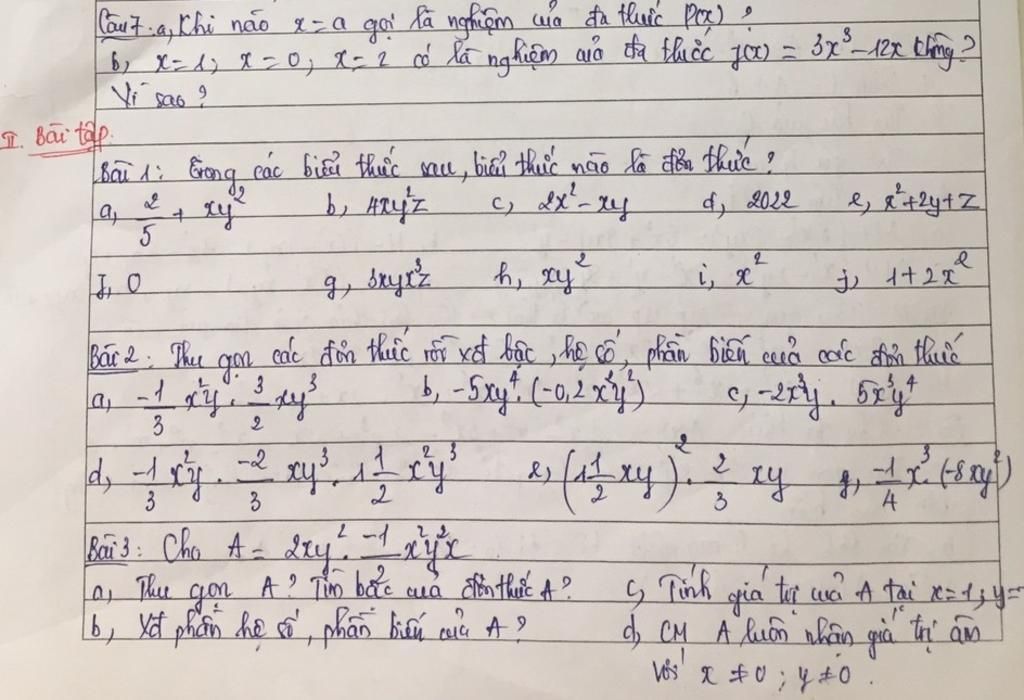 Câu 7. a, Khi nào x = a gọi là nghiệm của đa thức P(x) ?
b, x = 1; x = 0; x = 2 có là nghiệm của đa thức f(x) = 3x³ - 12x không?
Vì sao ?
II. Bài tập.
Bài 1: Trong các biểu thức sau, biểu thức nào là đơn thức ?
a, 2/5 + xy² b, 4xy²z c, 2x² - xy d, 2022 e, x² + 2y + z
f, 0 g, 3xyx³z h, xy² i, x² j, 1 + 2x²
Bài 2: Thu gọn các đơn thức rồi xđ bậc, hệ số, phần biến của các đơn thức
a, -1/3 x²y . 3/2 xy³ b, -5xy⁴. (-0,2x²y²) c, -2x³y . 5x³y⁴
d, -1/3 x²y . -2/3 xy³ . 1 1/2 x²y³ e, (1 1/2 xy)² . 2/3 xy g, -1/4 x³. (-8xy²)
Bài 3: Cho A = 2xy² . -1/2 x²y²x
a, Thu gọn A ? Tìm bậc của đơn thức A ? c, Tính giá trị của A tại x = 1; y = -
b, Xđ phần hệ số, phần biến của A ? d, CM A luôn nhận giá trị âm
với x ≠ 0 ; y ≠ 0 .